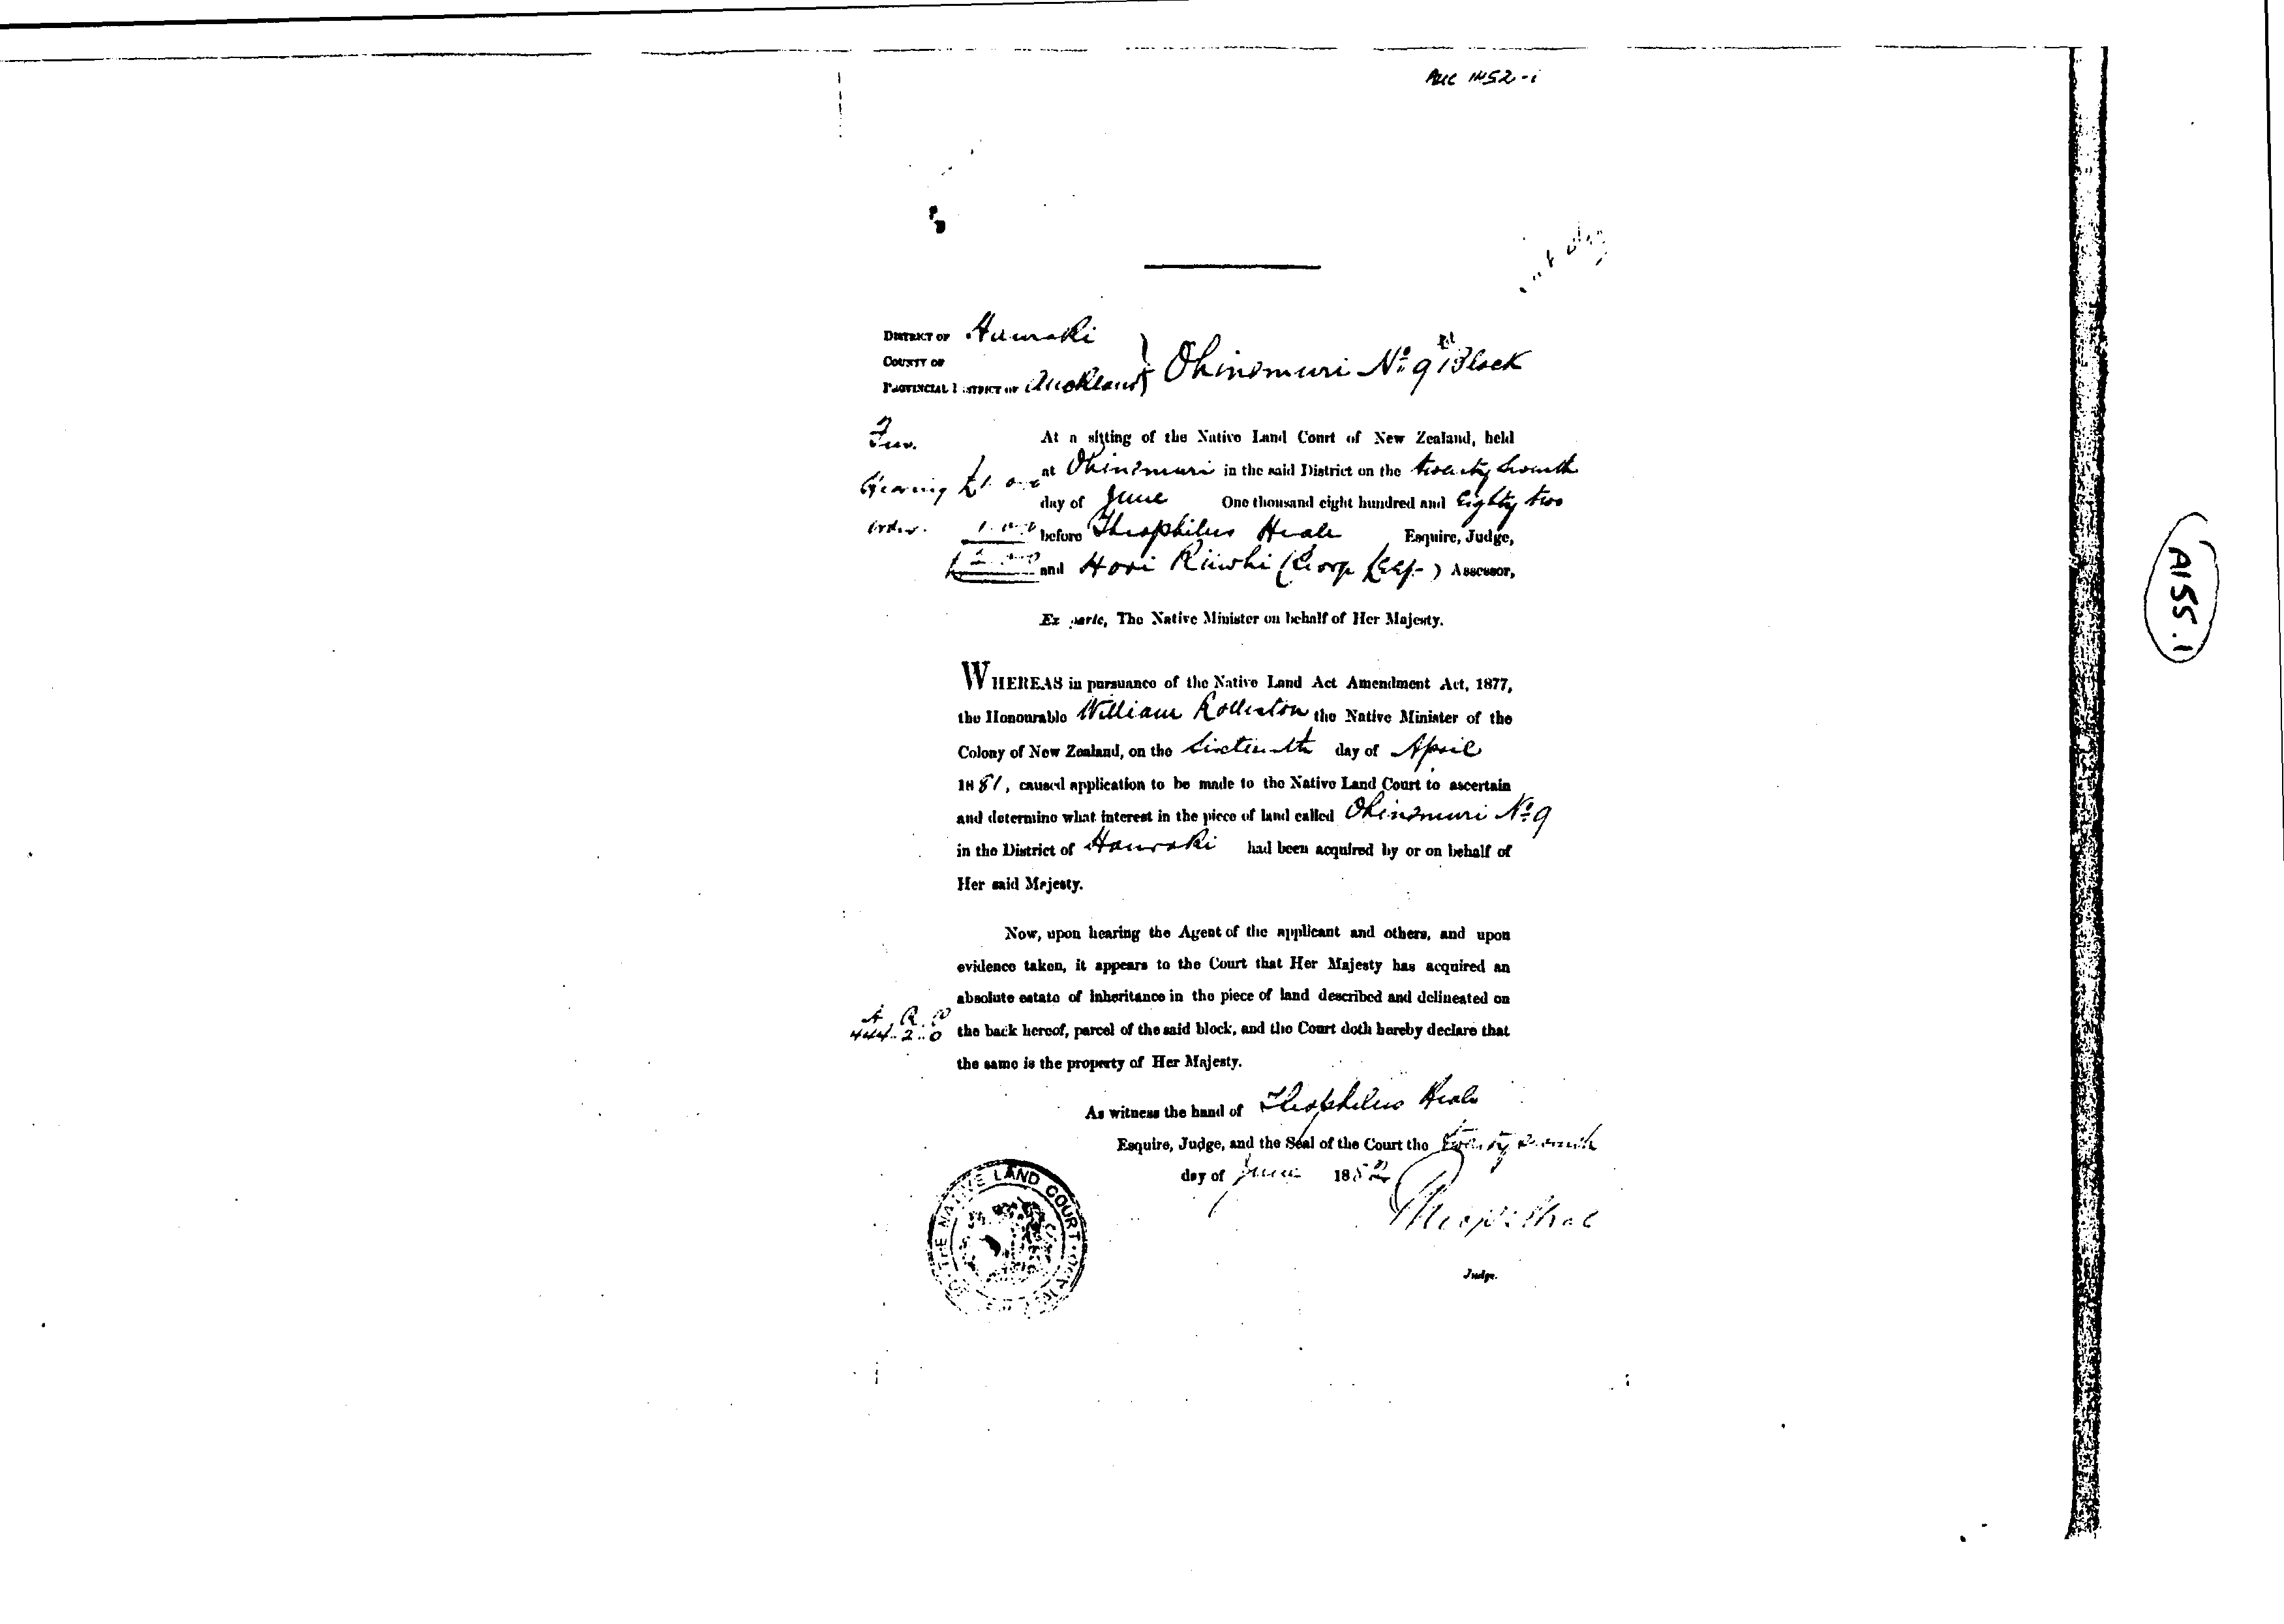 AUC 1452-i
DISTRICT OF Hauraki
COUNTY OF
PROVINCIAL DISTRICT OF Auckland } Ohinemuri No. 9 Block
At a sitting of the Native Land Court of New Zealand, held
at Ohinemuri in the said District on the twenty seventh
Hearing £1
day of June One thousand eight hundred and Eighty two
Order.
before Theophilus Heale Esquire, Judge,
and Hori Assessor,
Ex parte, The Native Minister on behalf of Her Majesty.
WHEREAS in pursuance of the Native Land Act Amendment Act, 1877,
the Honourable William Rolleston the Native Minister of the
Colony of New Zealand, on the Sixteenth day of April
1881, caused application to be made to the Native Land Court to ascertain
and determine what interest in the piece of land called Ohinemuri No. 9
in the District of Hauraki had been acquired by or on behalf of
Her said Majesty.
Now, upon hearing the Agent of the applicant and others, and upon
evidence taken, it appears to the Court that Her Majesty has acquired an
absolute estate of inheritance in the piece of land described and delineated on
A. R. P
444. 2. 0 the back hereof, parcel of the said block, and the Court doth hereby declare that
the same is the property of Her Majesty.
As witness the hand of Theophilus Heale
Esquire, Judge, and the Seal of the Court the twenty seventh
day of June 1882
THE NATIVE LAND COURT
Judge.
A155.1